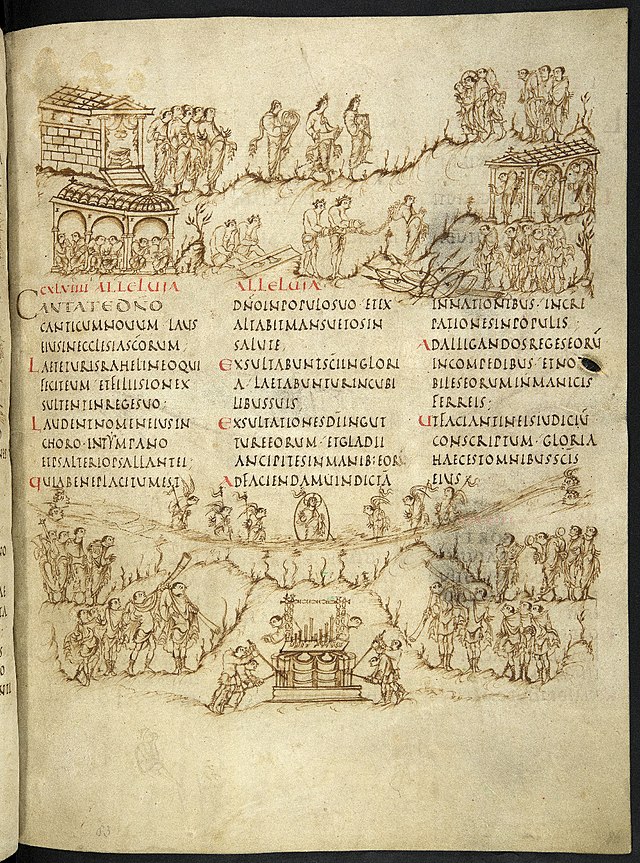 CXLVIIII ALLELUIA
CANTATE DNO
CANTICUM NOUUM LAUS
EIUS IN ECCLESIA SCORUM;
LAETETUR ISRAHEL IN EO QUI
FECIT EUM ET FILII SION EX
SULTENT IN REGE SUO;
LAUDENT NOMEN EIUS IN
CHORO· IN TYMPANO
ET PSALTERIO PSALLANT EI;
QUIA BENE PLACITUM EST
ALLELUIA
DNO IN POPULO SUO· ET EX
ALTABIT MANSUETOS IN
SALUTE;
EXSULTABUNT SCI IN GLORI
A· LAETABUNTUR IN CUBI
LIBUS SUIS;
EXSULTATIONES DI IN GUT
TURE EORUM· ET GLADII
ANCIPITES IN MANIB; EORU
AD FACIENDAM UINDICTA
IN NATIONIBUS· INCRE
PATIONES IN POPULIS;
AD ALLIGANDOS REGES EORU
IN COMPEDIBUS· ET NO
BILES EORUM IN MANICIS
FERREIS;
UT FACIANT IN EIS IUDICIU
CONSCRIPTUM· GLORIA
HAEC EST OMNIBUS SCIS
EIUS
83